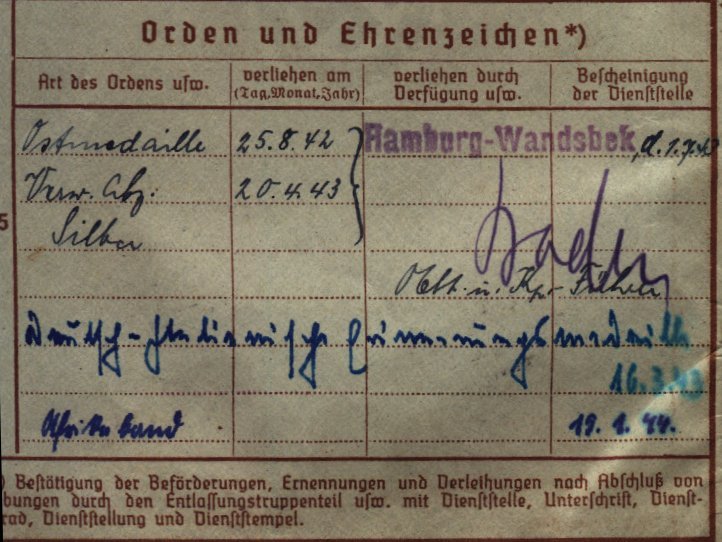 Orden und Ehrenzeichen*)
Art des Ordens usw.
verliehen am
(Tag, Monat, Jahr)
verliehen durch
Verfügung usw.
Bescheinigung
der Dienststelle
Ostmedaille 25.8.42 Hamburg-Wandsbek, d. 1.7.43
Verw. Abz. 20.4.43
Silber
5
Oblt. u. Kp.-Führer
Deutsch-Italienische Erinnerungsmedaille
16.3.43
Afrikaband 19.1.44.
) Bestätigung der Beförderungen, Ernennungen und Verleihungen nach Abschluß von
bungen durch den Entlassungstruppenteil usw. mit Dienststelle, Unterschrift, Dienst-
rad, Dienststellung und Dienststempel.